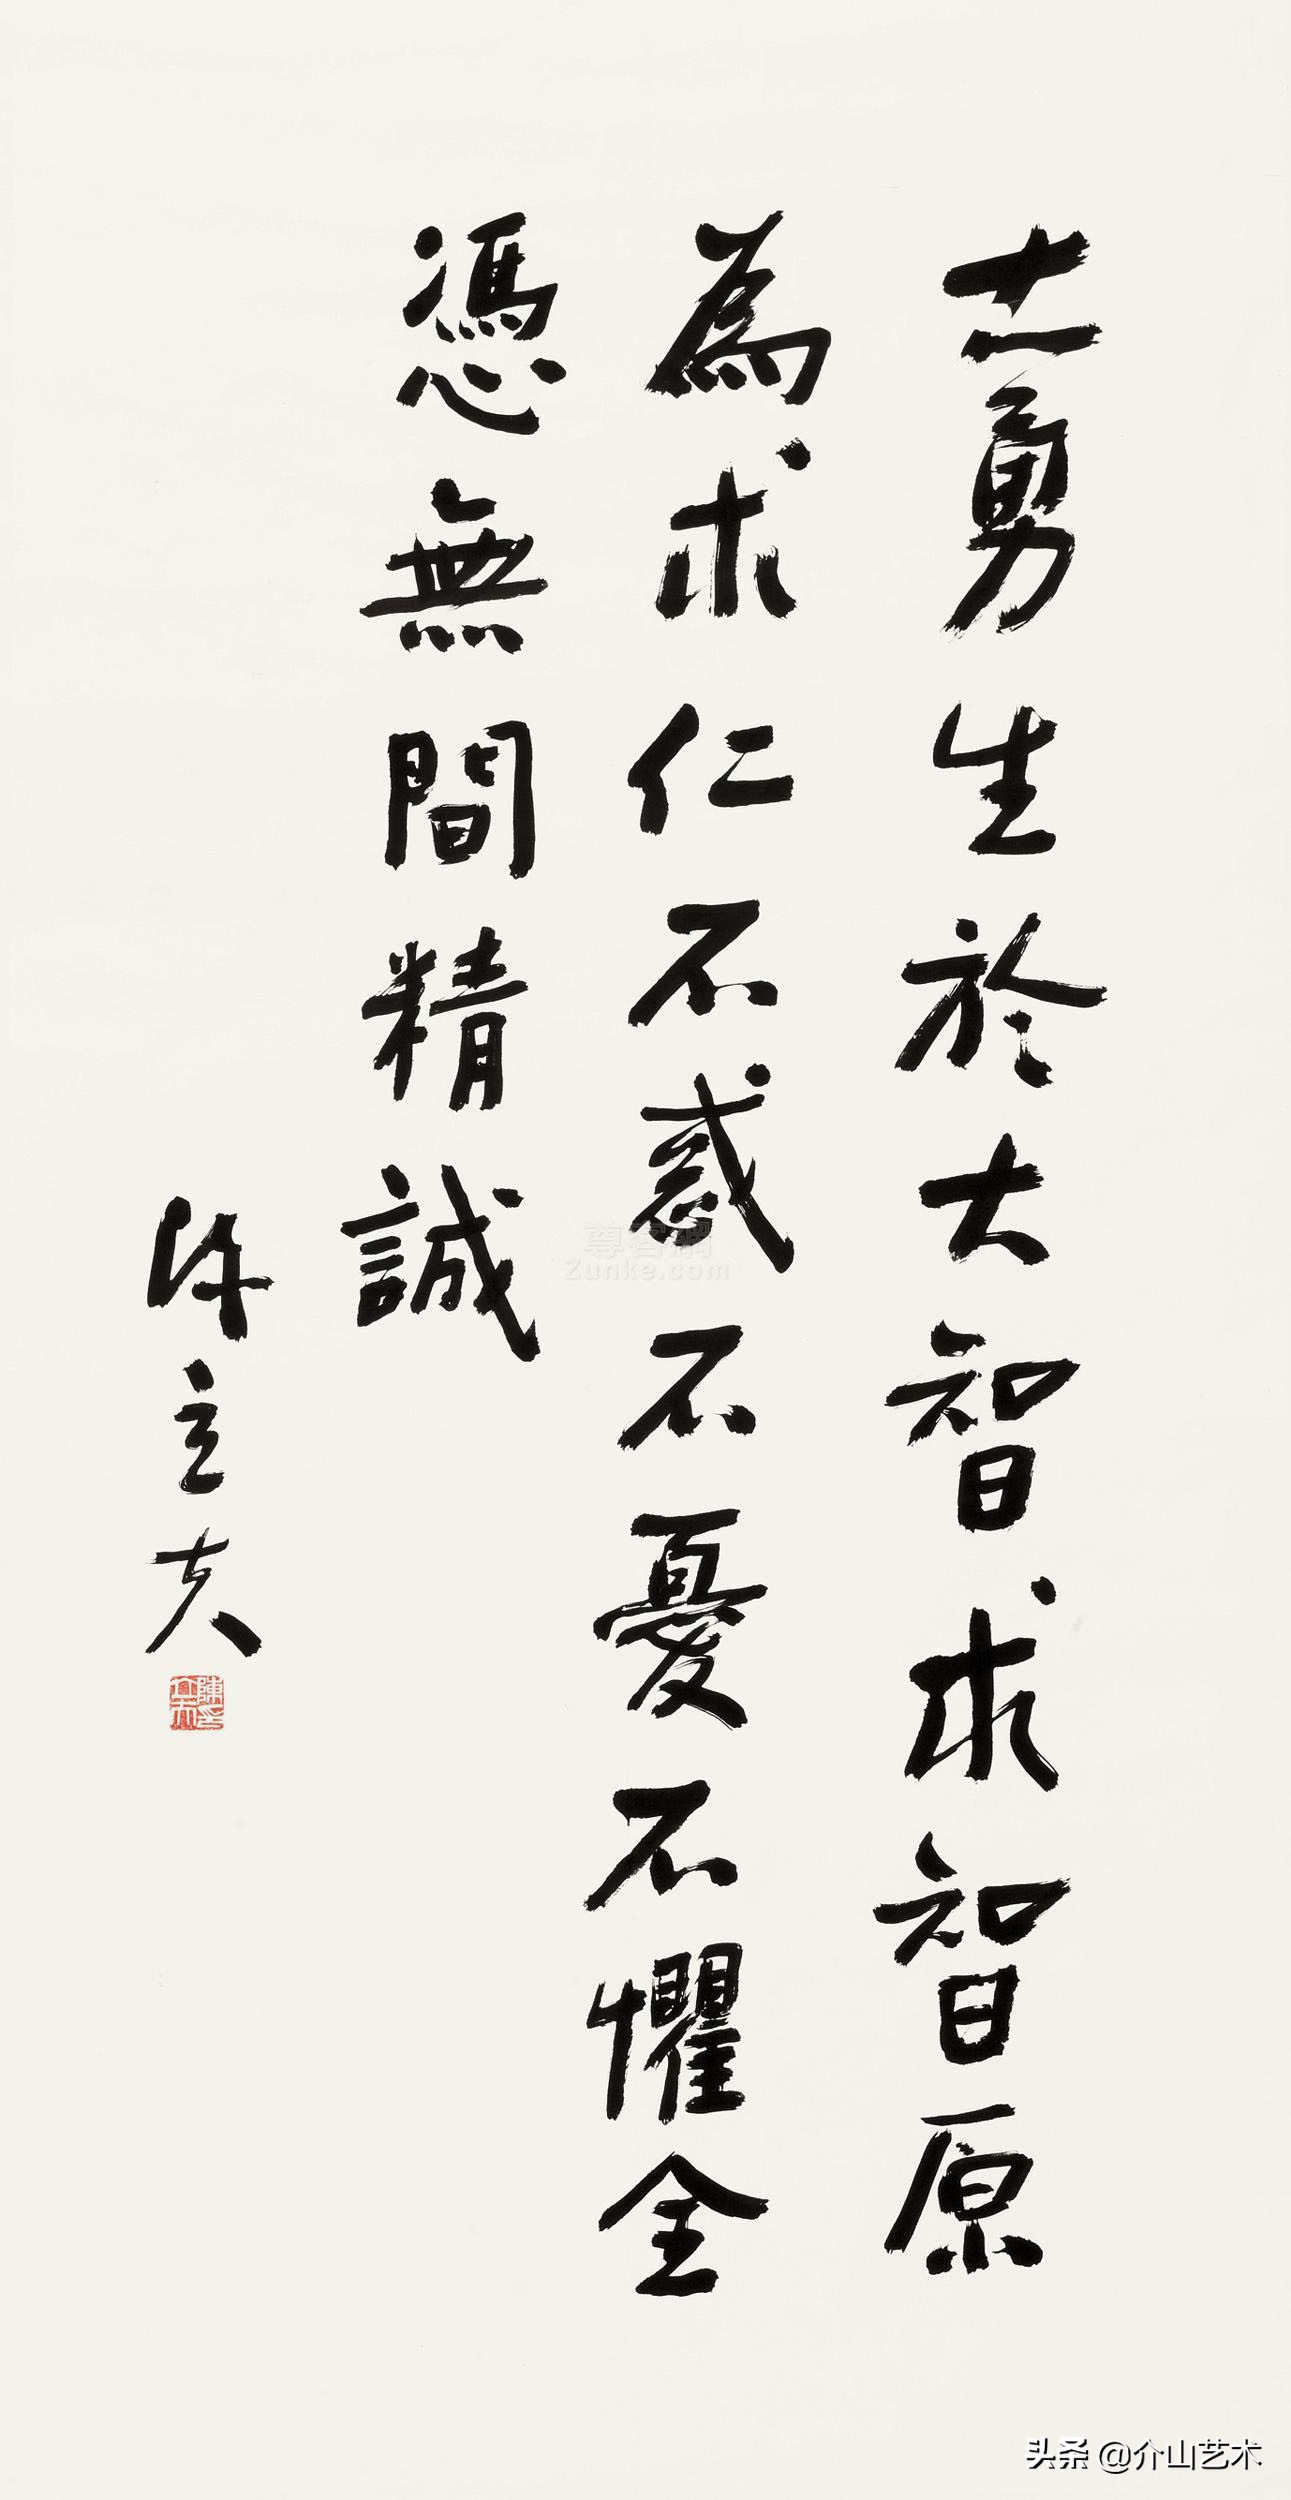 大勇生於大智求智原
為求仁不惑不憂不懼全
憑無間精誠
陳立夫
陳立夫印
尊客網
Zunke.com
头条 @介山艺术